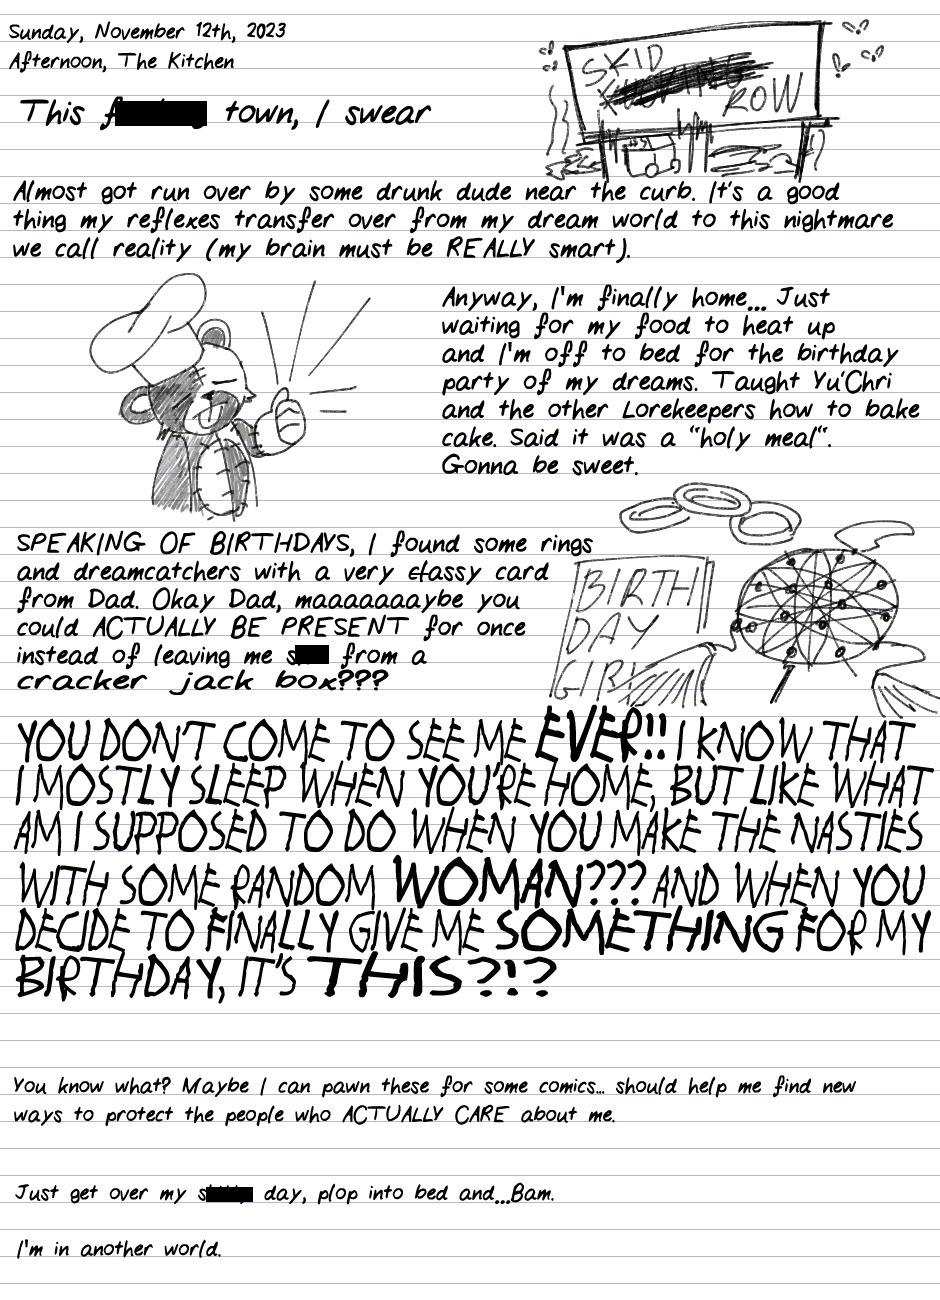 Sunday, November 12th, 2023
Afternoon, The Kitchen
SKID
ROW
This f town, I swear
Almost got run over by some drunk dude near the curb. It's a good
thing my reflexes transfer over from my dream world to this nightmare
we call reality (my brain must be REALLY smart).
Anyway, I'm finally home... Just
waiting for my food to heat up
and I'm off to bed for the birthday
party of my dreams. Taught Yu'Chri
and the other Lorekeepers how to bake
cake. Said it was a "holy meal".
Gonna be sweet.
SPEAKING OF BIRTHDAYS, I found some rings
and dreamcatchers with a very classy card
from Dad. Okay Dad, maaaaaaaybe you
could ACTUALLY BE PRESENT for once
instead of leaving me s from a
cracker jack box???
BIRTH
DAY
GIRL
YOU DON'T COME TO SEE ME EVER!! I KNOW THAT
I MOSTLY SLEEP WHEN YOU'RE HOME, BUT LIKE WHAT
AM I SUPPOSED TO DO WHEN YOU MAKE THE NASTIES
WITH SOME RANDOM WOMAN??? AND WHEN YOU
DECIDE TO FINALLY GIVE ME SOMETHING FOR MY
BIRTHDAY, IT'S THIS?!?
You know what? Maybe I can pawn these for some comics... should help me find new
ways to protect the people who ACTUALLY CARE about me.
Just get over my s day, plop into bed and...Bam.
I'm in another world.